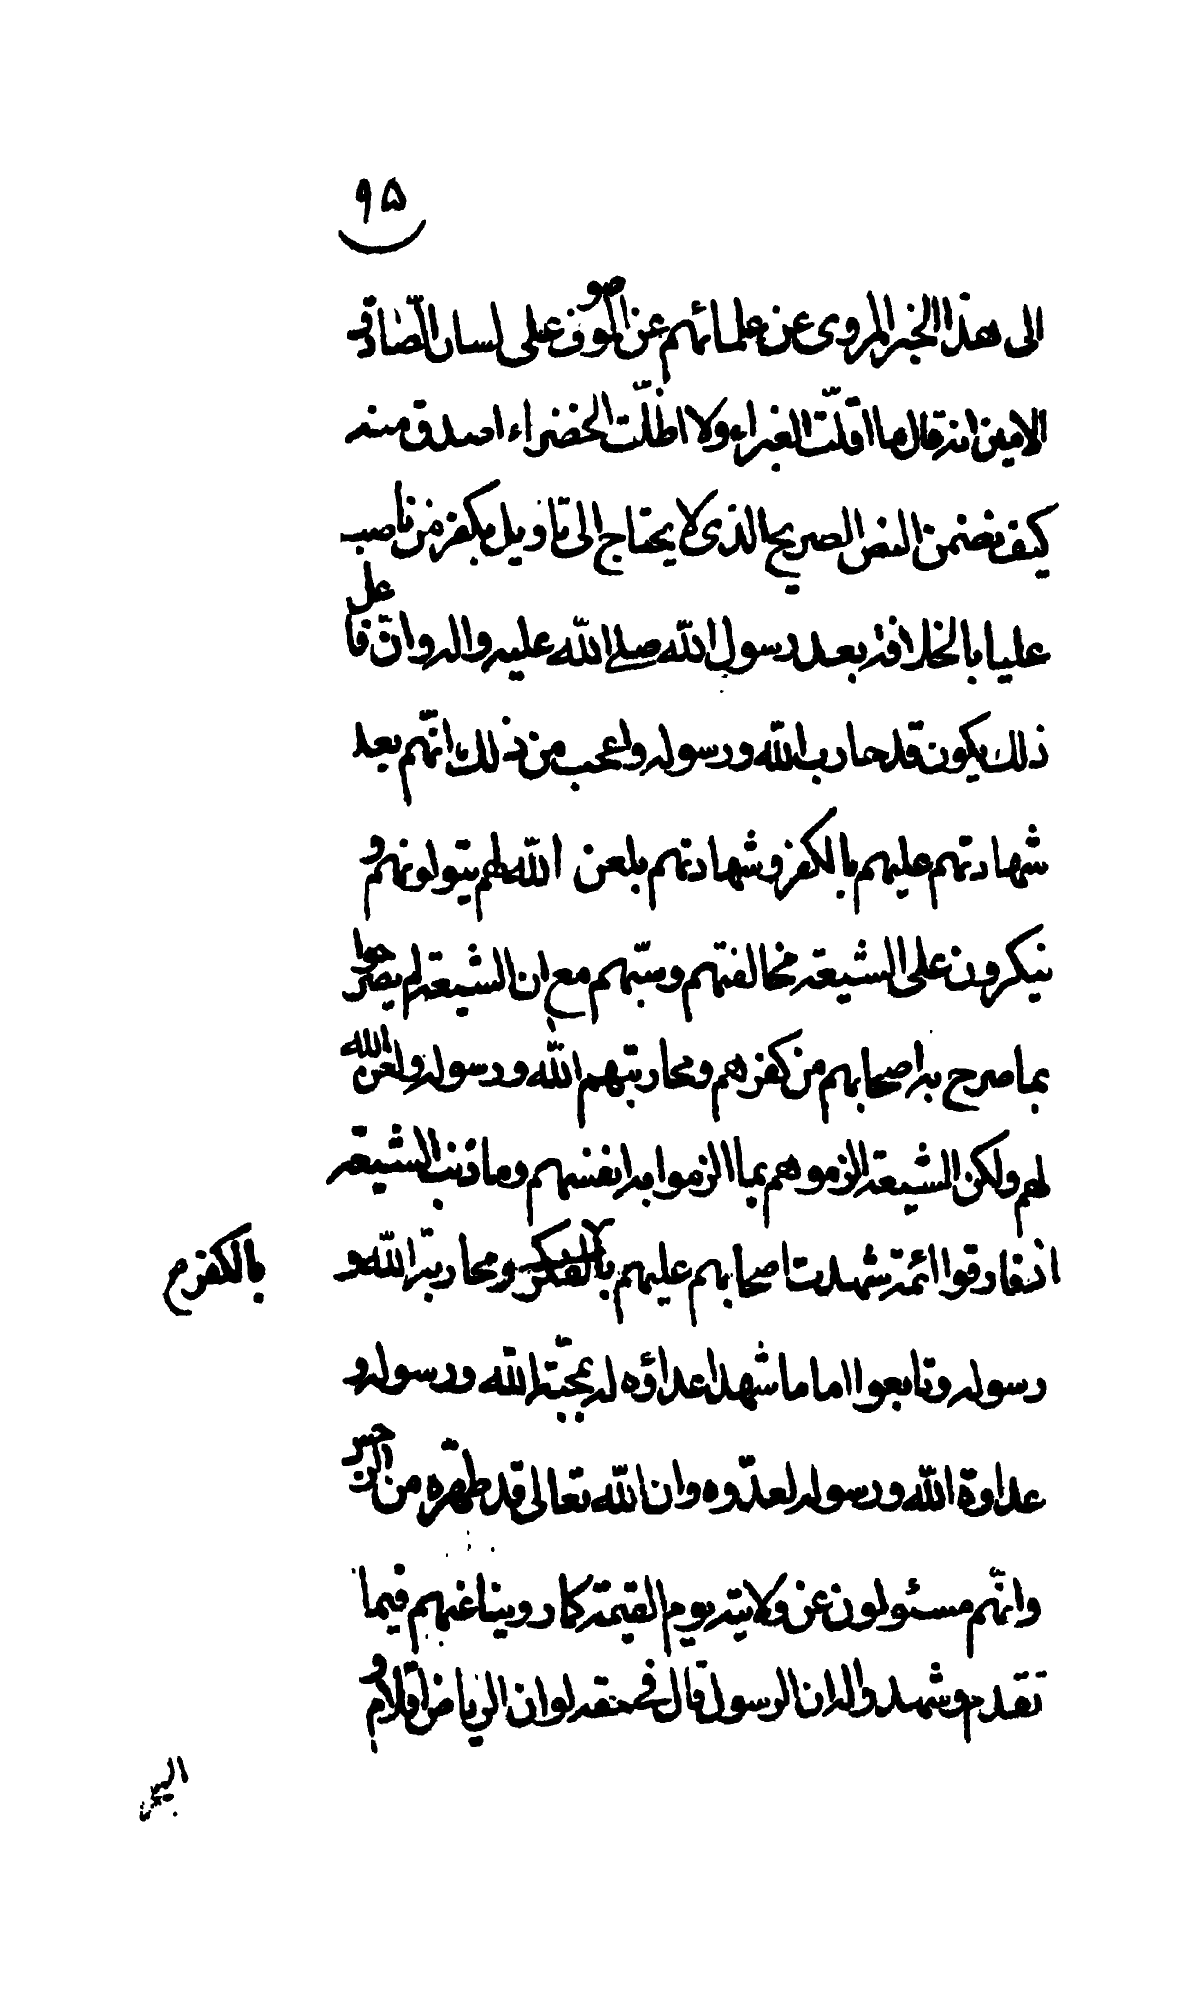 ٩٥
الى هذا الخبر المروى عن علمائهم عن الموصوف على لسان الصادق
الامين انه قال ما اقلت الغبراء ولا اظلت الخضراء اصدق منه
كيف تضمن النص الصريح الذى لا يحتاج الى تاويل بكفر من ناصب
عليا بالخلافة بعد رسول الله صلى الله عليه واله وان فاعل
ذلك يكون قد حارب الله ورسوله واعجب من ذلك انهم بعد
شهادتهم عليهم بالكفر وشهادتهم بلعن الله لهم يتولونهم و
ينكرون على الشيعة مخالفتهم وسبهم مع ان الشيعة لم يصرحوا
بما صرح به اصحابهم من كفرهم ومحاربتهم الله ورسوله ولعن الله
لهم ولكن الشيعة الزموهم بما الزموا به انفسهم وما ذنب الشيعة
اذ فارقوا ائمة شهدت اصحابهم عليهم ومحاربة الله و
بالكفر م
رسوله وتابعوا اماما شهد اعداؤه له بمحبة الله ورسوله و
عداوة الله ورسوله لعدوه وان الله تعالى قد طهره من الرجس
وانهم مسئولون عن ولايته يوم القيمة كما روينا عنهم فيما
تقدم وشهدوا له ان الرسول قال فى حقه لو ان الرياض اقلام و
البحر